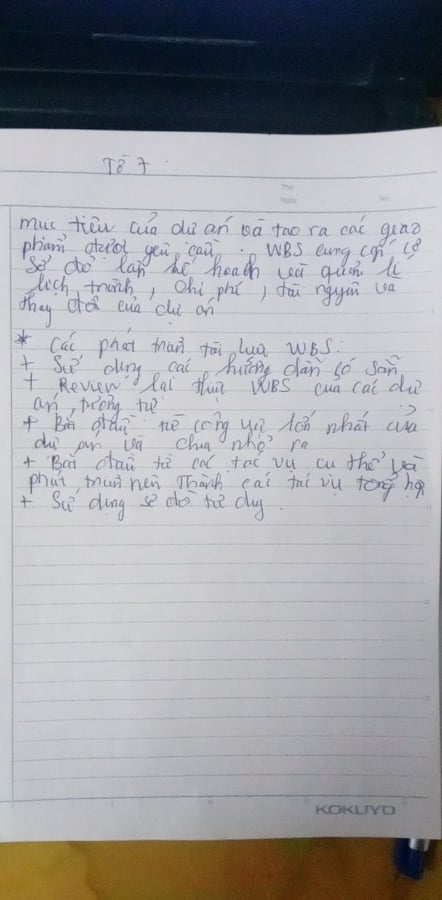 Tờ 7
Thứ
Ngày
No
mục tiêu của dự án và tạo ra các giao
phẩm được yêu cầu. WBS cung cấp cơ
sở để lập kế hoạch và quản lí
lịch trình, chi phí, tài nguyên và
thay đổi của dự án
* Các phát triển tài liệu WBS:
+ Sử dụng các hướng dẫn có sẵn
+ Review lại thừ WBS của các dự
án tương tự
+ Bắt đầu từ công việc lớn nhất của
dự án và chia nhỏ ra
+ Bắt đầu từ các tác vụ cụ thể và
phát triển nên thành các tác vụ tổng hợp
+ Sử dụng sơ đồ tư duy.
KOKUYO